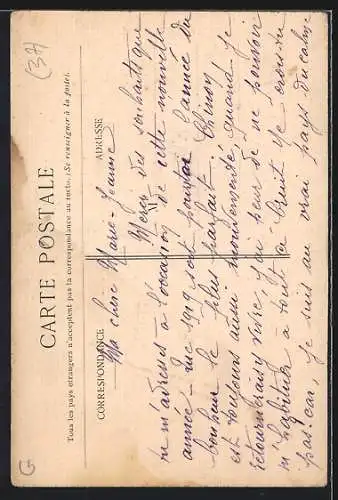 (37)
CARTE POSTALE
Tous les pays étrangers n'acceptent pas la correspondance au recto. (Se renseigner à la poste).
CORRESPONDANCE
ADRESSE
Ma chère Marie-Jeanne
Merci des souhaits que
tu m'adresses à l'occasion de cette nouvelle
année - que 1919 soit pour toi l'année du
bonheur le plus parfait. Chinon
est toujours aussi mouvementé, quand je
retournerai y vivre, j'ai peur de ne pouvoir
m'habituer à tout ce bruit
pas. car, je suis au vrai pays du calme
G